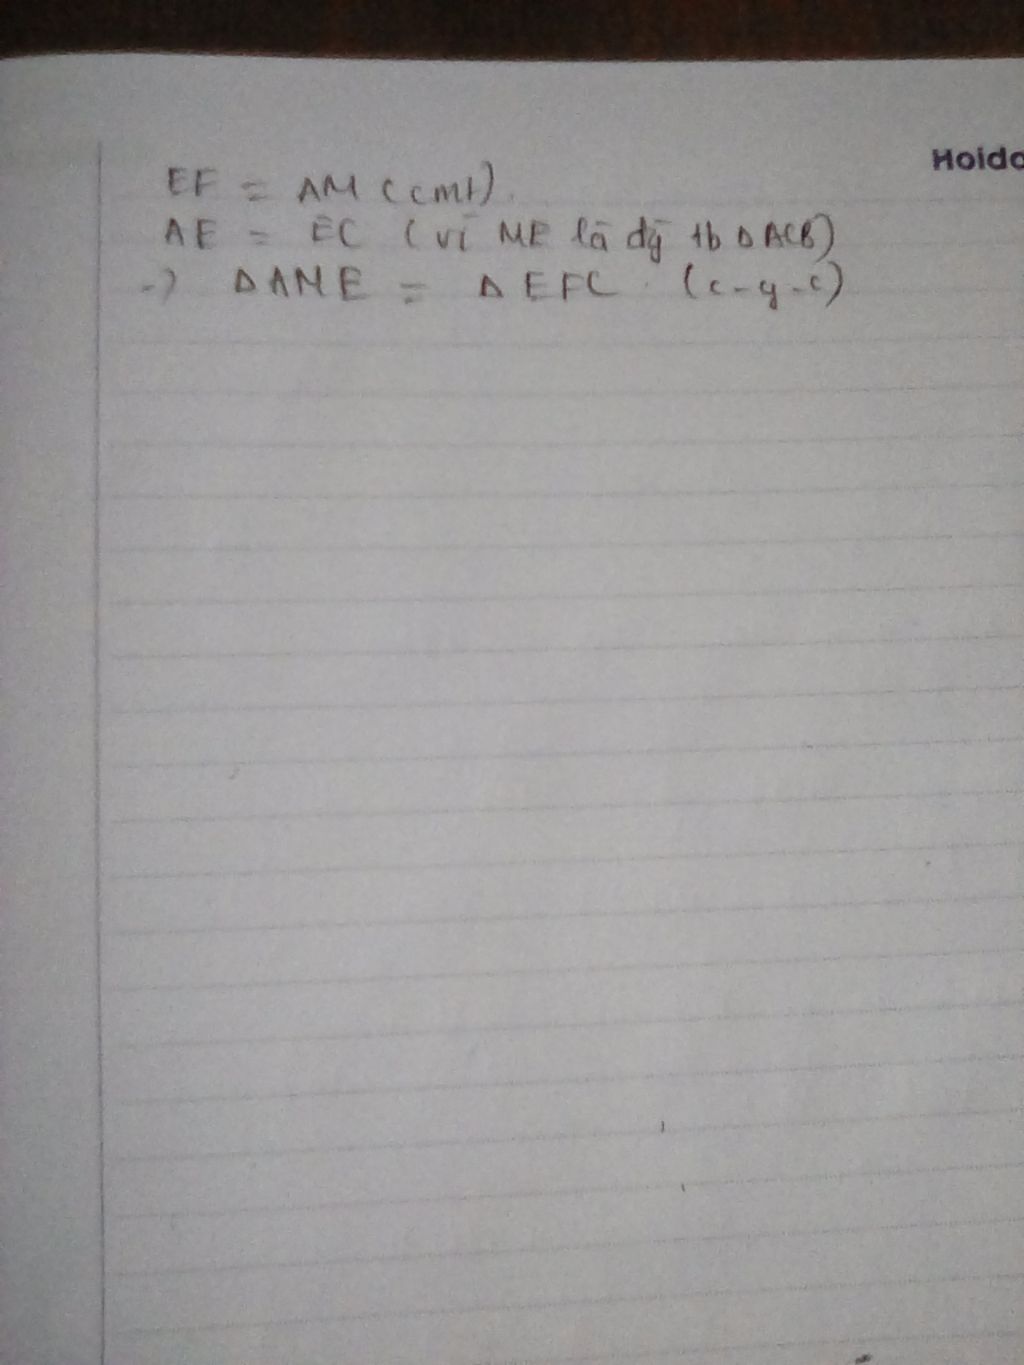 Hoidc
EF = AM (cmt).
AE = EC (vì ME là đg tb ΔACB)
-> ΔAME = ΔEFC. (c-g-c)